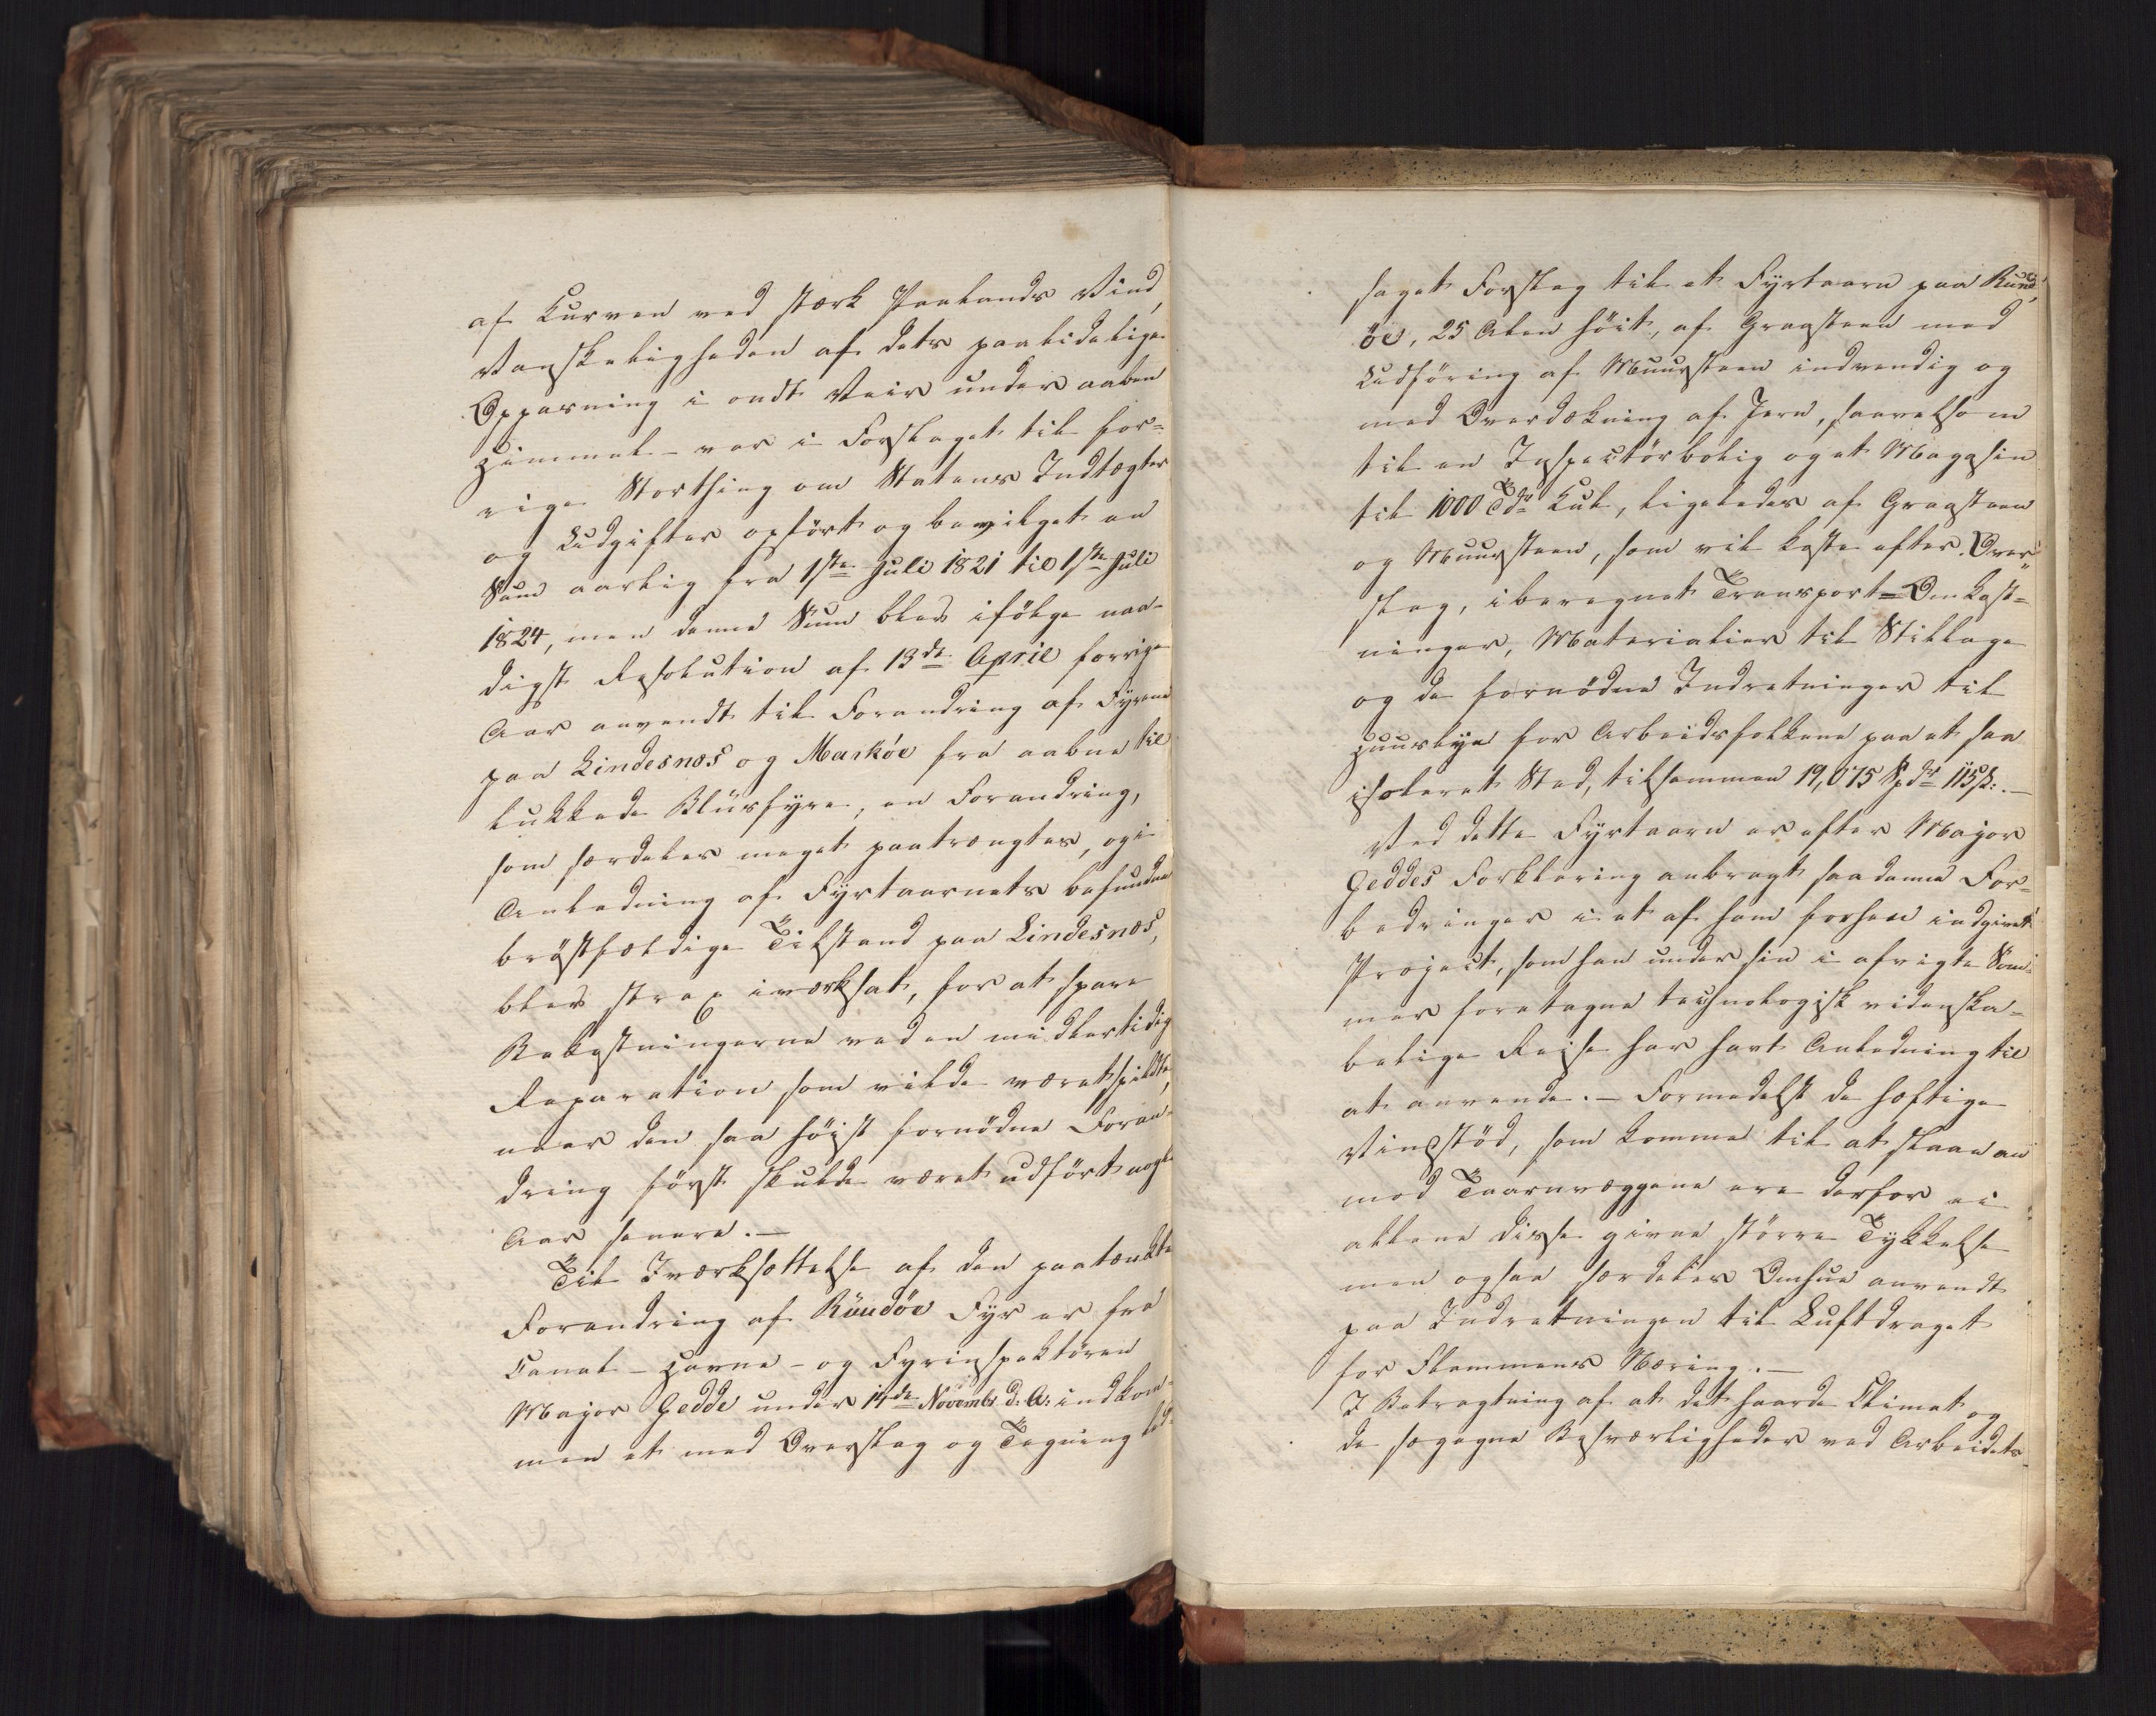 af Kurven ved stærk Paalands Vind,
Vanskeligheden af dets paalidelige
Oppasning i ondt Veir under aaben
Himmel – var i Forslaget til for-
rige Storthing om Statens Indtægter
og Udgifter opført og bevilget en
Sum aarlig fra 1ste Juli 1821 til 1ste Juli
1824, men denne Sum blev ifølge naa-
digst Resolution af 13de April forrige
Aar anvendt til Forandring af Fyrene
paa Lindesnæs og Markøe fra aabne til
lukkede Blüsfyre, en Forandring,
som særdeles meget paatrængtes, og i
Anledning af Fyrtaarnets befundne
brøstfældige Tilstand paa Lindesnæs,
blev strax iværksat, for at spare
Bekostningerne ved en midlertidig
Reparation som vilde været spildte,
naar den saa høist fornødne Foran-
dring først skulde været udført nogle
Aar senere. –
Til Iværksættelse af den paatænkte
Forandring af Rundøe Fyr er fra
Canal- Havne- og Fyrinspektøren
Major Gedde under 14de Novembr d. A: indkom-
men et med Overslag og Tegning led-
saget Forslag til et Fyrtaarn paa Rund-
øe, 25 Alen høit, af Graasteen med
Udføring af Muursteen indvendig og
med Overdækning af Jern, saavelsom
til en Inspectørbolig og et Magasin
til 1000 Tdr Kul, ligeledes af Graasteen
og Muursteen, som vil koste efter Over-
slag, iberegnet Transport-Omkost-
ninger, Materialier til Stillage
og de fornødne Indretninger til
Huuslye for Arbeidsfolkene paa et saa
isoleret Sted, tilsammen 19,075 Spdr 115 ß. –
Ved dette Fyrtaarn er efter Major
Geddes Forklaring anbragt saadanne For-
bedringer i et af ham forhen indgivet
Project, som han under sin i afvigte Som-
mer foretagne technologisk videnska-
belige Reise har havt Anledning til
at anvende. – Formedelst de heftige
Vindstød, som komme til at slaae an
mod Taarnvæggene ere derfor ei
allene disse givne større Tykkelse
men ogsaa særdeles Omhue anvendt
paa Indretningen til Luftdraget
for Flammens Næring. –
I Betragtning af at det haarde Climat og
de sægegne Besværligheder ved Arbeidets